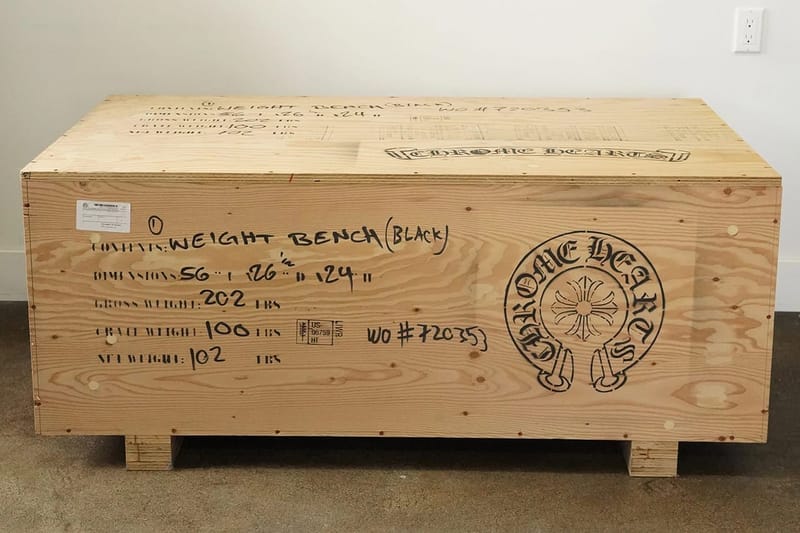 ① CONTENTS: WEIGHT BENCH (BLACK) WO #720353
DIMENSIONS: 56 " L x 26 " W x 24 " H
GROSS WEIGHT: 202 LBS
CRATE WEIGHT: 100 LBS
NET WEIGHT: 102 LBS
CHROME HEARTS
①
CONTENTS: WEIGHT BENCH (BLACK)
DIMENSIONS: 56 " L x 26 " W x 24 " H
GROSS WEIGHT: 202 LBS
CRATE WEIGHT: 100 LBS
NET WEIGHT: 102 LBS
US-
HT
WO #720353
CHROME HEARTS